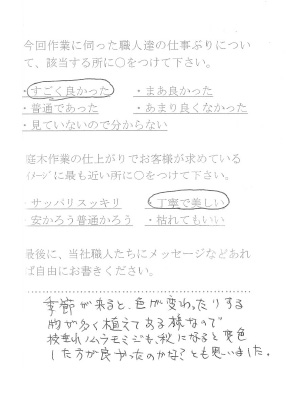 今回作業に伺った職人達の仕事ぶりについ
て、該当する所に○をつけて下さい。
・すごく良かった ・まあ良かった
・普通であった ・あまり良くなかった
・見ていないので分からない
庭木作業の仕上がりでお客様が求めている
イメージに最も近い所に○をつけて下さい。
・サッパリスッキリ ・丁寧で美しい
・安かろう普通かろう ・枯れてもいい
最後に、当社職人たちにメッセージなどあれ
ば自由にお書きください。
季節が来ると、色が変わったりする
物が多く植えてある様なので
枝垂れノムラモミジも、秋になると変色
した方が良かったのかなとも思いました。